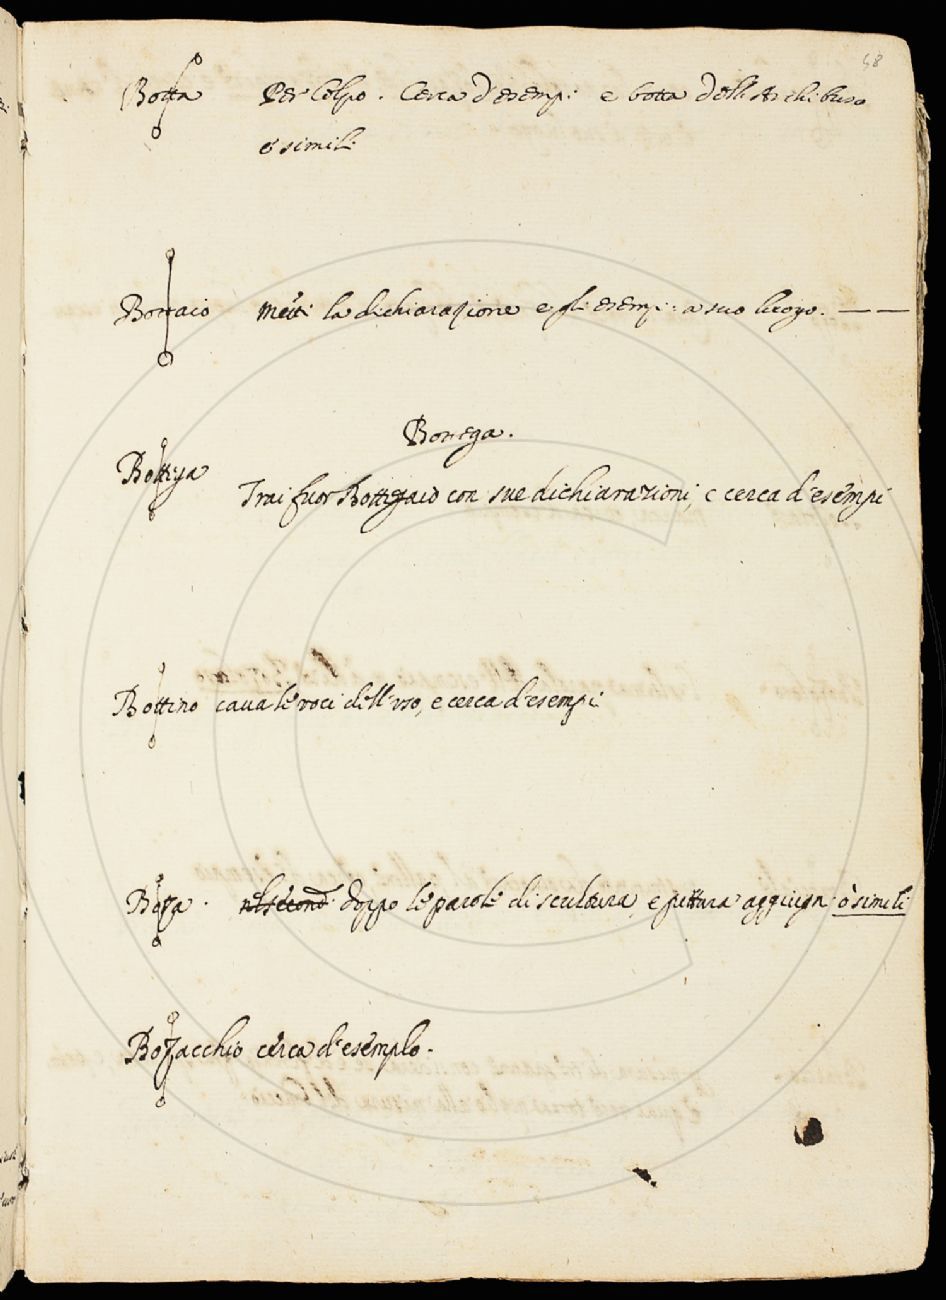 68
Botta Per Colpo. Cerca d'esempi e botta dell'Archibuso
ò simili
Bottaio metti la dichiarazione e gli esempi: a suo luogo. — —
Bottega.
Bottiga
Trai fuor Bottegaio con sue dichiarazioni, e cerca d'esempi
Bottino caua le voci dell'uso, e cerca d'esempi
Boza. nel second. doppo le parole di scultura, e pittura aggiugn: ò simili
Bozacchio cerca d'esemplo.